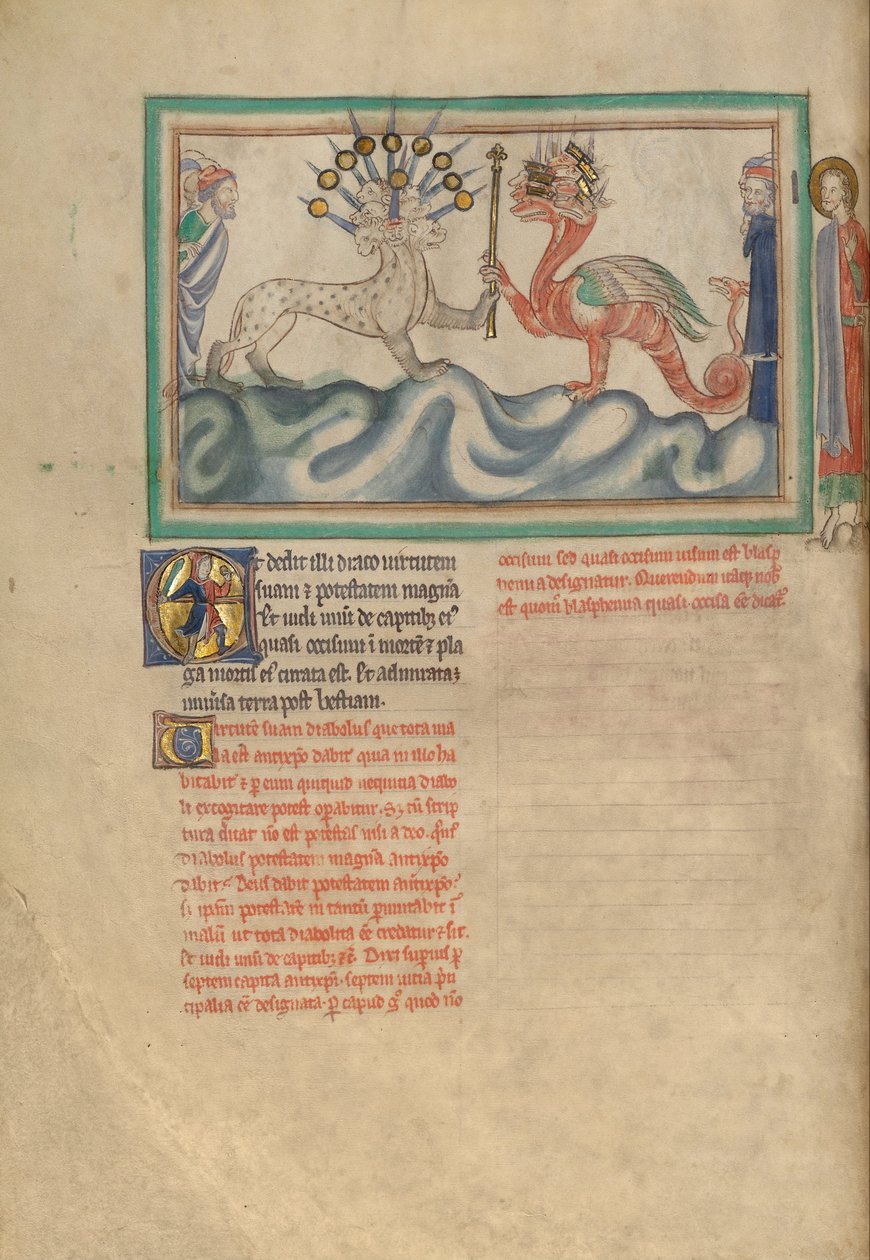 Et dedit illi draco uirtutem
suam ⁊ potestatem magnā
Et uidi unū de capitibȝ eiꝰ
quasi occisum ī mortē ⁊ pla
ga mortis eiꝰ curata est. Et admirataȝ
uniūsa terra post bestiam.
Uirtutē suam diabolus que tota ma
la est antixp̄o dabit quia in illo ha
bitabit ⁊ ꝑ eum quitquid nequitia diabo
li excogitare potest oꝑabitur. Sȝ cū scrip
tura dicat nō est potestas nisi a deo.
diabolus potestatem magnā antixp̄o
dabit. Deus dabit potestatem antixp̄o.
si ipsam potestatē in tantū ꝑmittabit ī
malū ut tota diabolica eē credatur ⁊ sit.
Et uidi unū de capitibȝ ⁊c̄. Dixi superius ꝑ
septem capita antixp̄i. septem uitia p̄ri
cipalia eē designata. ꝑ capud gͦ quod nō
occisum sed quasi occisum uisum est blasꝑ
hemia designatur. Querendum itaqȝ nob̄
est quom̄ blasphemia quasi occisa eē dicat᷑.